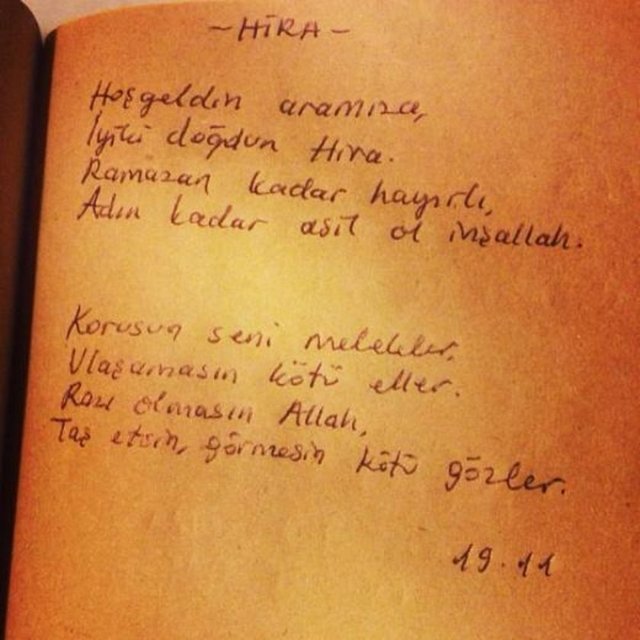 -HİRA-
Hoşgeldin aramıza,
İyiki doğdun Hira.
Ramazan kadar hayırlı,
Adın kadar asil ol inşallah.
Korusun seni melekler,
Ulaşamasın kötü eller.
Razı olmasın Allah,
Taş etsin, görmesin kötü gözler.
19.11